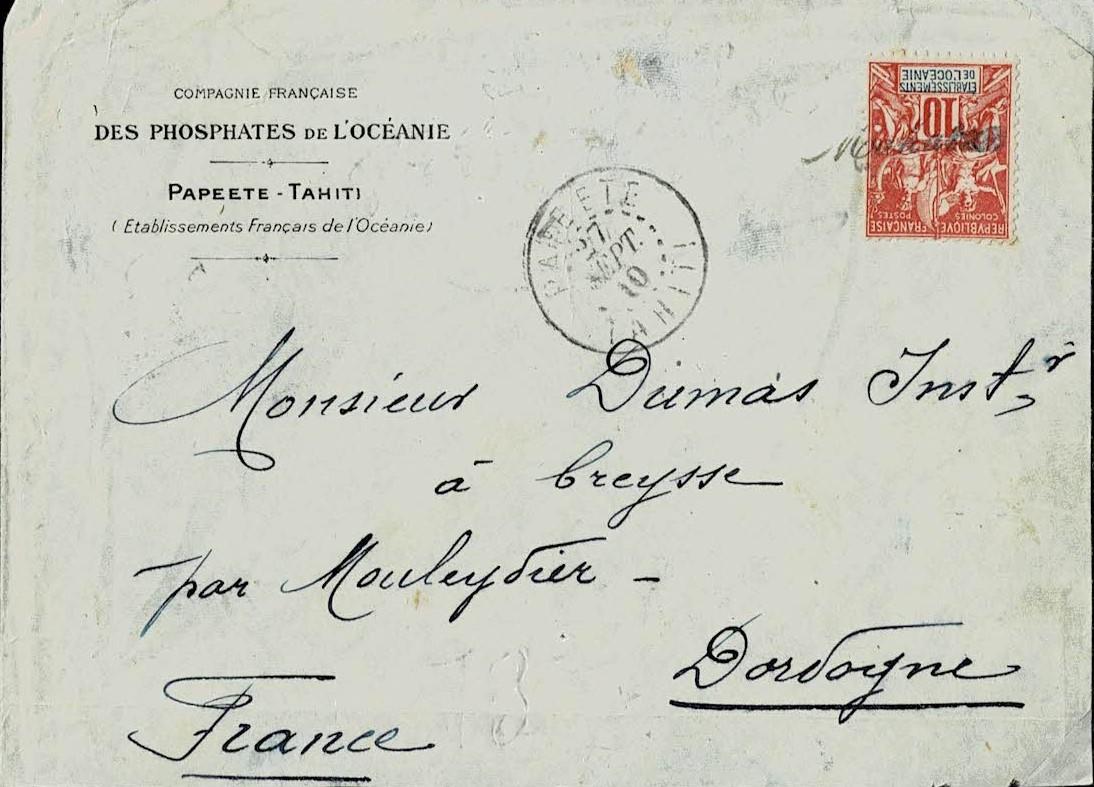 COMPAGNIE FRANÇAISE
DES PHOSPHATES DE L'OCÉANIE
PAPEETE - TAHITI
(Etablissements Français de l'Océanie)
PAPEETE
27
SEPT.
10
TAHITI
ETABLISSEMENTS
DE L'OCÉANIE
10
COLONIES
POSTES
REPUBLIQUE FRANÇAISE
Monsieur Dumas Instr
à Creysse
par Mouleydier -
Dordogne
France